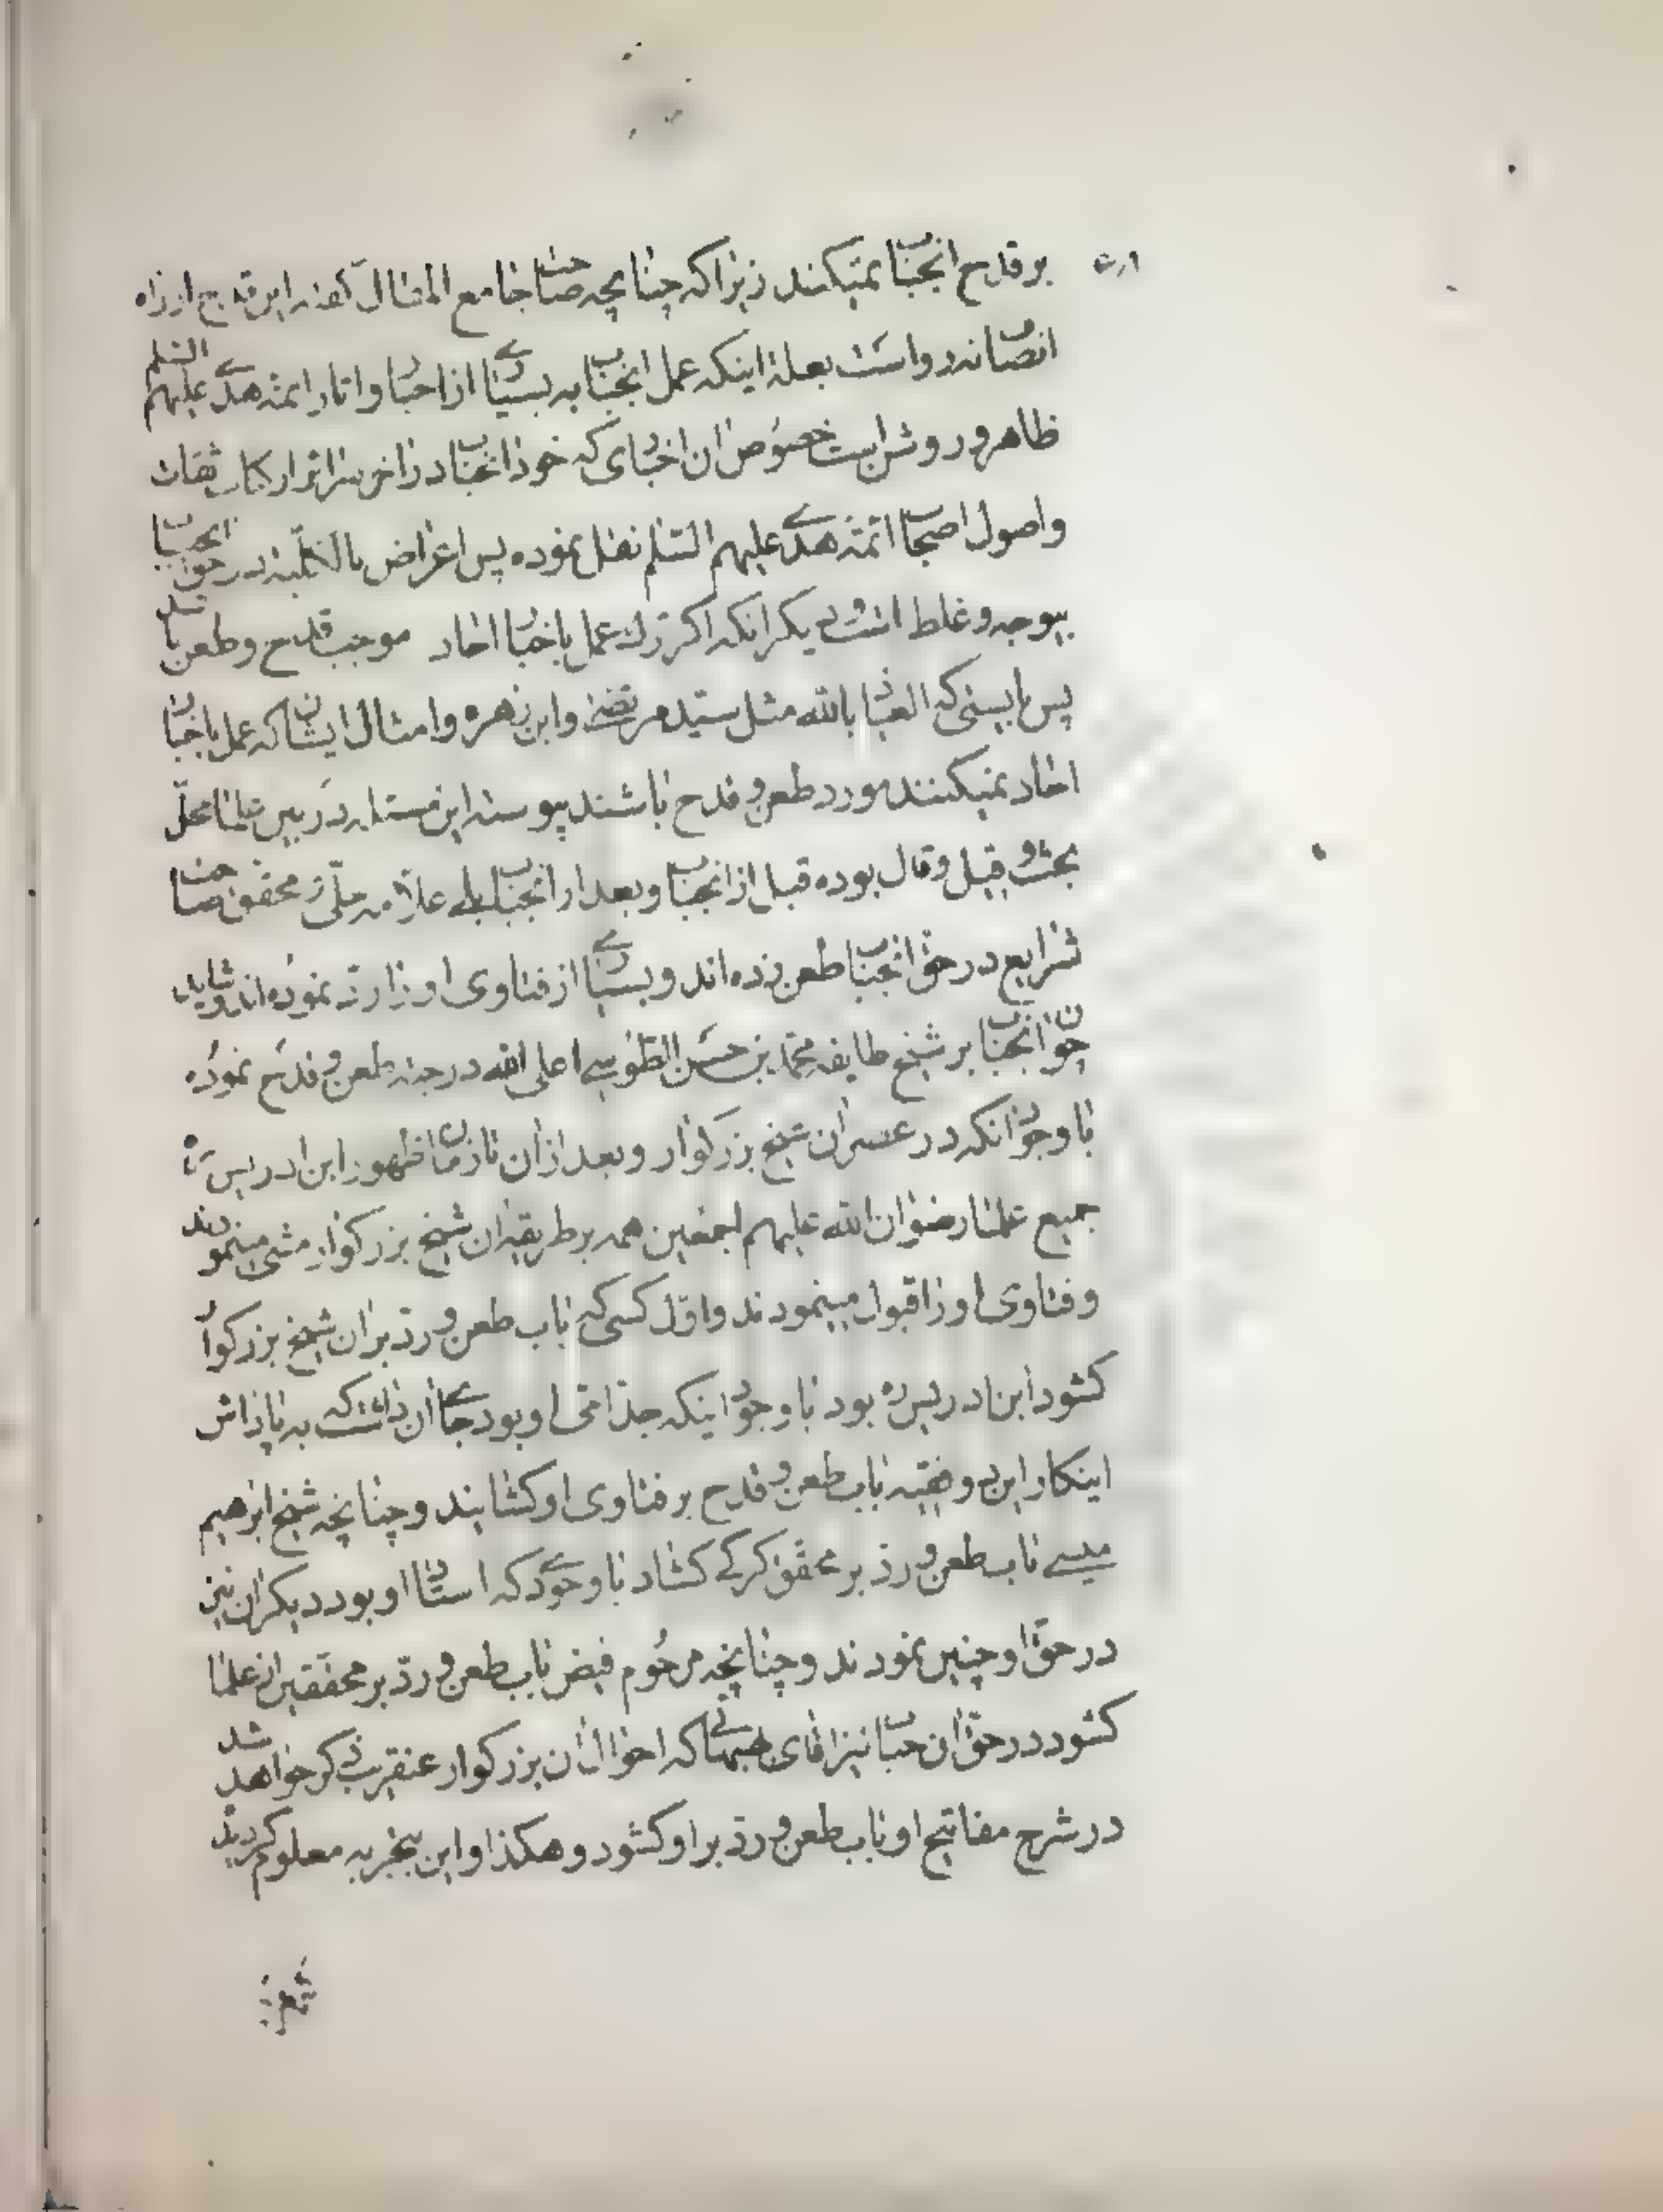 بر قدح انجناب نمیکند زیرا که چنانچه صاحب جامع المقال گفته این قدح از راه
انصاف دور است بعلة اینکه عمل انجناب به بسیاری از اخبار و اثار ائمه هدی علیهم السلم
ظاهر و روشن است خصوص ان اخباری که خود انجناب در اخر سرائر از کتاب ثقات
و اصول اصحاب ائمه هدی علیهم السلم نقل نموده پس اعراض بالکلیه در حق انجناب
بیوجه و غلط است و دیگر انکه اکر ترک عمل باخبار احاد موجب قدح و طعن باشد
پس بایستی که العیاذ بالله مثل سید مرتضی و ابن زهره و امثال ایشان که عمل باخبار
احاد نمیکنند مورد طعن و قدح باشند پیوسته این مسئله در بین علما محل
بحث و قیل و قال بوده قبل از انجناب و بعد از انجناب بلی علامه حلی و محقق صاحب
شرایع در حق انجناب طعن زده اند و بسیاری از فتاوی او را رد نموده اند و شاید
چون انجناب بر شیخ طایفه محمد بن حسن الطوسی اعلی الله درجته طعن و قدح نموده
با وجود انکه در عصر ان شیخ بزرکوار و بعد از ان تا زمان ظهور ابن ادریس ره
جمیع علما رضوان الله علیهم اجمعین همه بر طریقه ان شیخ بزرکوار مشی مینمودند
و فتاوی او را قبول مینمودند و اول کسی که باب طعن و رد بر ان شیخ بزرکوار
کشود ابن ادریس ره بود با وجود اینکه جد امی او بود جای ان داشت که به پاداش
اینکار این دو فقیه باب طعن و قدح بر فتاوی او کشایند و چنانچه شیخ ابرهیم
میسی باب طعن و رد بر محقق کرکی کشاد با وجودی که استاد او بود دیکران نیز
در حق او چنین نمودند و چنانچه مرحوم فیض باب طعن و رد بر محققین از علما
کشود در حق ان جناب نیز اقای بهبهانی که احوال ان بزرکوار عنقریب ذکر خواهد شد
در شرح مفاتیح او باب طعن و رد بر او کشود و هکذا و این بتجربه معلوم کردید